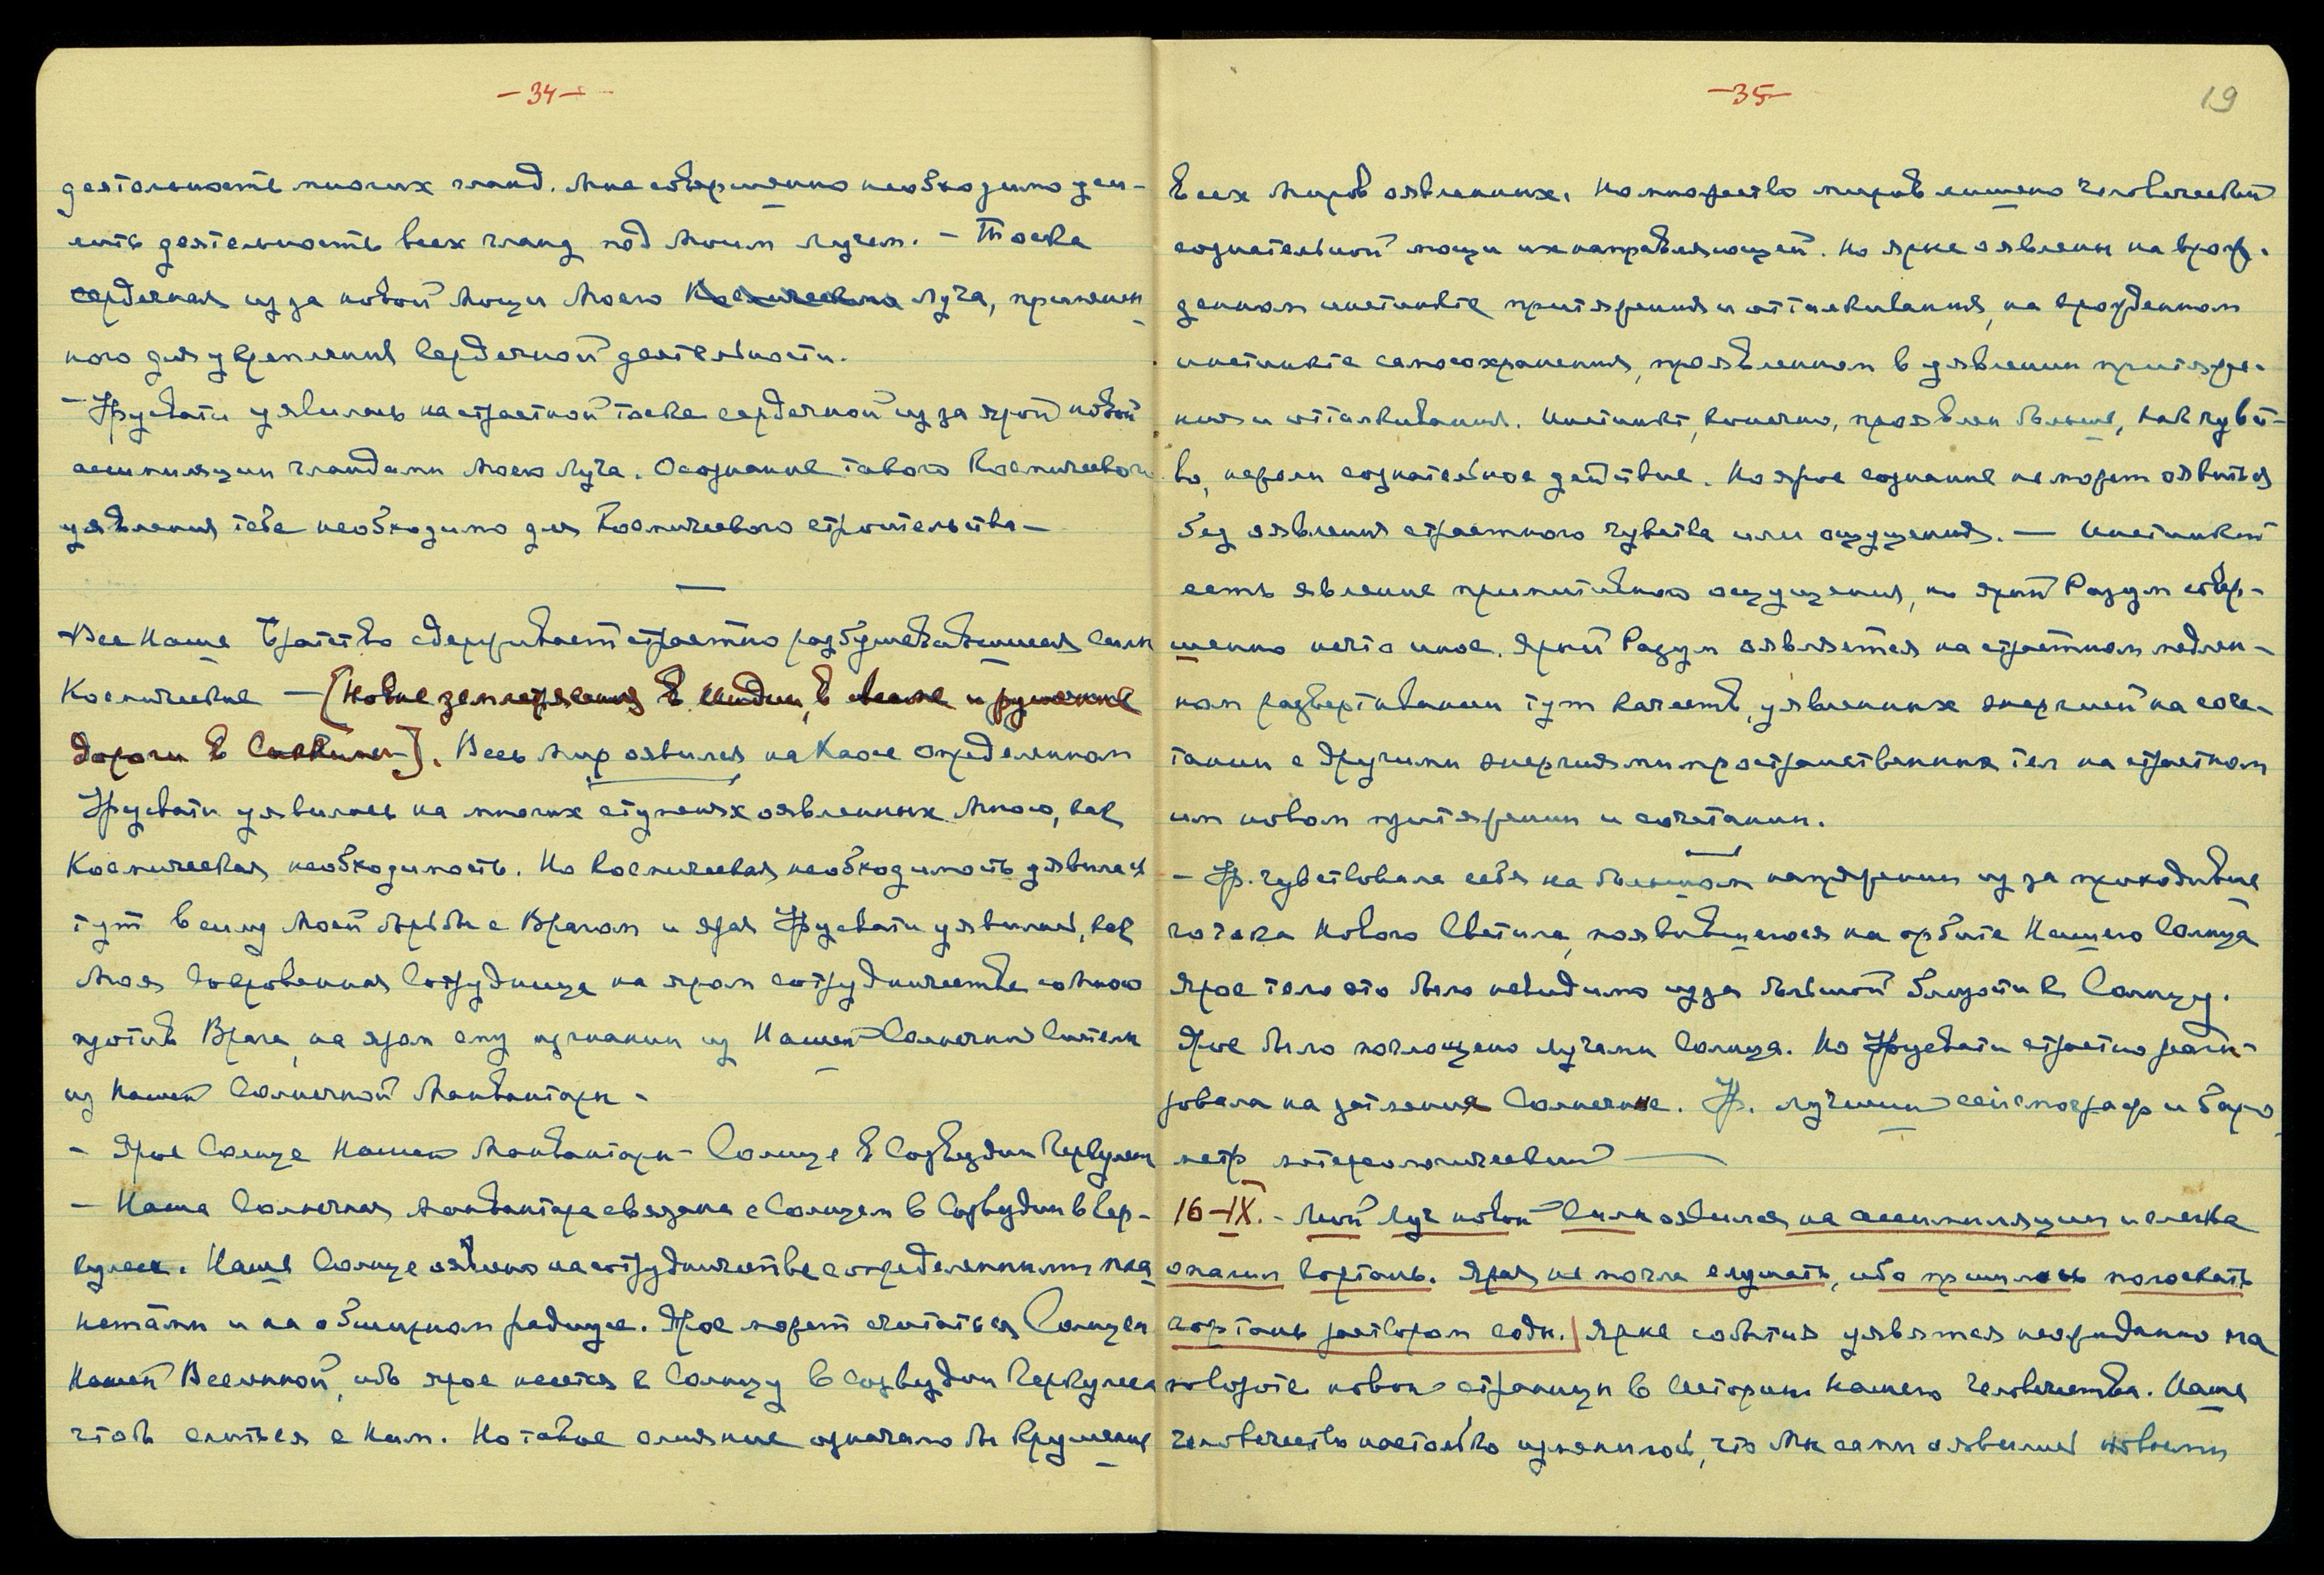 -34-
деятельность многих гланд. Мне совершенно необходимо уси-
лить деятельность всех гланд под Моим лучем. - Тоска
сердечная из за новой Мощи Моего Космического Луча, применен
ного для укрепления сердечной деятельности.
- Урусвати уявилась на страстной тоске сердечной из за ярой новой
ассимиляции гландами Моего Луча. Осознание такого Космического
уявления тебе необходимо для Космического строительства -
—
- Все Наше Братство сдерживает страстно разбушевавшиеся силы
Космические - [Новые землетрясения в Индии, в и рушение
дороги в Сиккиме-]. Весь мир оявился на Хаосе определенном
Урусвати уявилась на многих ступенях оявленных Мною, как
Космическая необходимость. Но Космическая необходимость уявилася
тут в силу Моей борьбы с Врагом и ярая Урусвати уявилась, как
Моя Сокровенная Сотрудница на яром сотрудничестве со Мною
против Врага, на яром ему изгнании из Нашей Солнечной Системы
из Нашей Солнечной Манвантары -
- Ярое Солнце Нашей Манвантары - Солнце в Созвездии Геркулеса
- Наша Солнечная Манвантара связана с Солнцем в Созвездии Гер-
кулеса. Наше Солнце оявлено на сотрудничестве с определенными пла
нетами и на обширном радиусе. Ярое может считаться Солнцем
Нашей Вселенной, ибо ярое несется к Солнцу в Созвездии Геркулеса
чтобы слиться с Ним. Но такое слияние означало бы крушение
-35-
19
всех Миров оявленных. Но множество миров лишено человеческой
сознательной мощи их направляющей. Но яркие оявлены на врож-
денном инстинкте притяжения и отталкивания, на врожденном
инстинкте самосохранения, проявленном в уявлении притяже-
ния и отталкивания. Инстинкт, конечно, проявлен больше, как чувст-
во, нежели сознательное действие. Но ярое сознание не может оявиться
без оявления страстного чувства или ощущения. — Инстинкт
есть явление примитивного ощущения, но ярый Разум совер-
шенно нечто иное. Ярый Разум оявляется на страстном медлен-
ном развертывании тут качеств, уявленных энергией на соче-
тании с другими энергиями пространственных тел на страстном
им новом притяжении и сочетании.
—
- Ур. чувствовала себя на большом напряжении из за приходивше
го тела Нового Светила, появившегося на орбите Нашего Солнца
Ярое тело это было невидимо из за большой близости к Солнцу.
Ярое было поглощено лучами Солнца. Но Урусвати страстно реаги-
ровала на затмения Солнечные. Ур. лучший сейсмограф и баро
метр метереологический —
16-IX. - Мой Луч новой Силы оявился на ассимиляции и слегка
опалил гортань. Ярая не могла слушать, ибо пришлось полоскать
гортань раствором соды.] Яркие события уявятся неожиданно на
повороте новой страницы в Истории нашего человечества. Наше
человечество настолько изменилось, что Мы сами оявились новыми